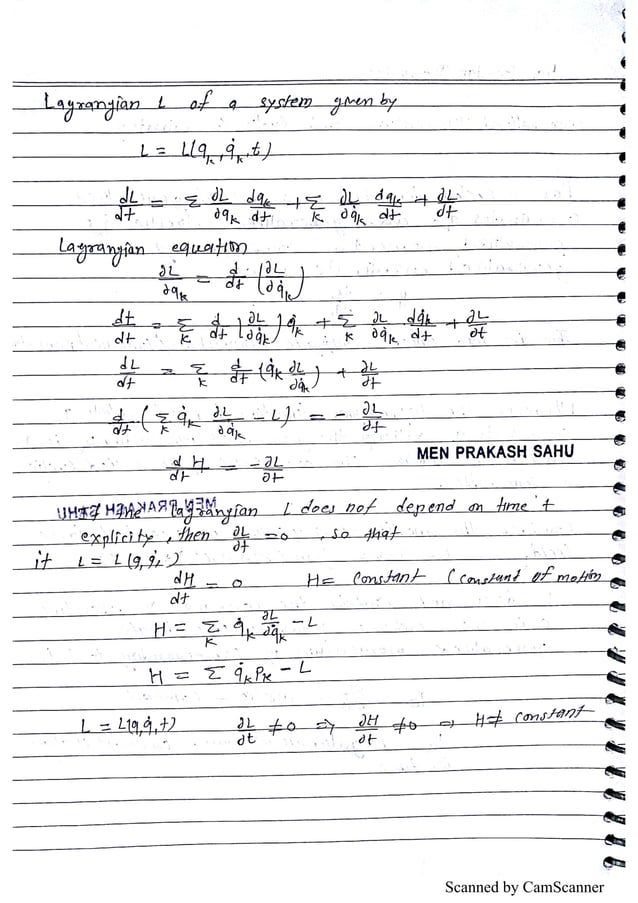 Lagrangian L of a system given by
L = L(qₖ, q̇ₖ, t)
dL/dt = Σ ∂L/∂qₖ dqₖ/dt + Σₖ ∂L/∂q̇ₖ dq̇ₖ/dt + ∂L/∂t
Lagrangian equation
∂L/∂qₖ = d/dt (∂L/∂q̇ₖ)
dt/dt = Σₖ d/dt (∂L/∂q̇ₖ) q̇ₖ + Σₖ ∂L/∂q̇ₖ dq̇ₖ/dt + ∂L/∂t
dL/dt = Σₖ d/dt (q̇ₖ ∂L/∂q̇ₖ) + ∂L/∂t
d/dt (Σₖ q̇ₖ ∂L/∂q̇ₖ - L) = - ∂L/∂t
d/dt H = -∂L/∂t
MEN PRAKASH SAHU
the Lagrangian L does not depend on time t
explicity, then ∂L/∂t = 0, so that
it L = L(q, q̇, )
dH/dt = 0 H = constant (constant of motion
H = Σₖ q̇ₖ ∂L/∂q̇ₖ - L
H = Σ q̇ₖ Pₖ - L
L = L(q, q̇, t) ∂L/∂t ≠ 0 ⇒ ∂H/∂t ≠ 0 ⇒ H ≠ constant
Scanned by CamScanner